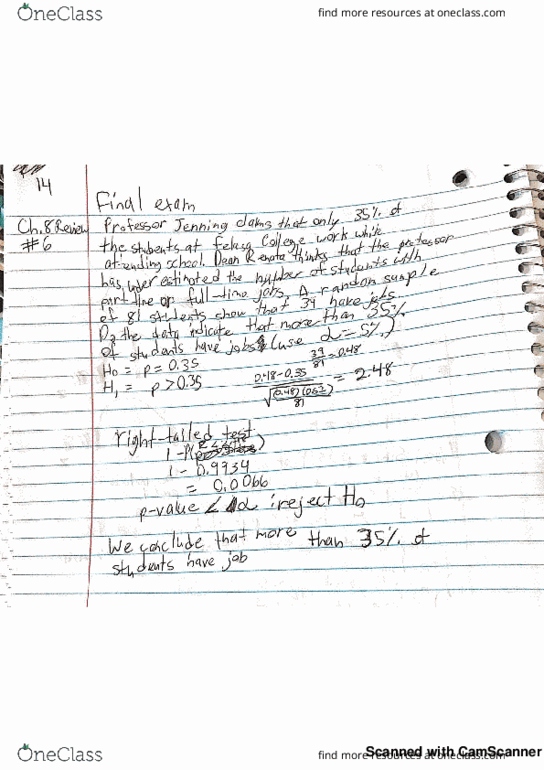 OneClass
find more resources at oneclass.com
14
Final exam
Ch.8 Review
#6
Professor Jenning claims that only 35% of
the students at Felusa College work while
attending school. Dean Renata thinks that the professor
has underestimated the number of students with
part-time or full-time jobs. A random sample
of 81 students show that 39 have jobs.
Do the data indicate that more than 35%
of students have jobs (use α=5%)
H₀ = p = 0.35
H₁ = p > 0.35
39/81 = 0.48
0.48-0.35 / = 2.48
right-tailed test
1 - P(
1 - 0.9934
= 0.0066
p-value < α reject H₀
We conclude that more than 35% of
students have job
OneClass
find more resources at oneclass.com
Scanned with CamScanner